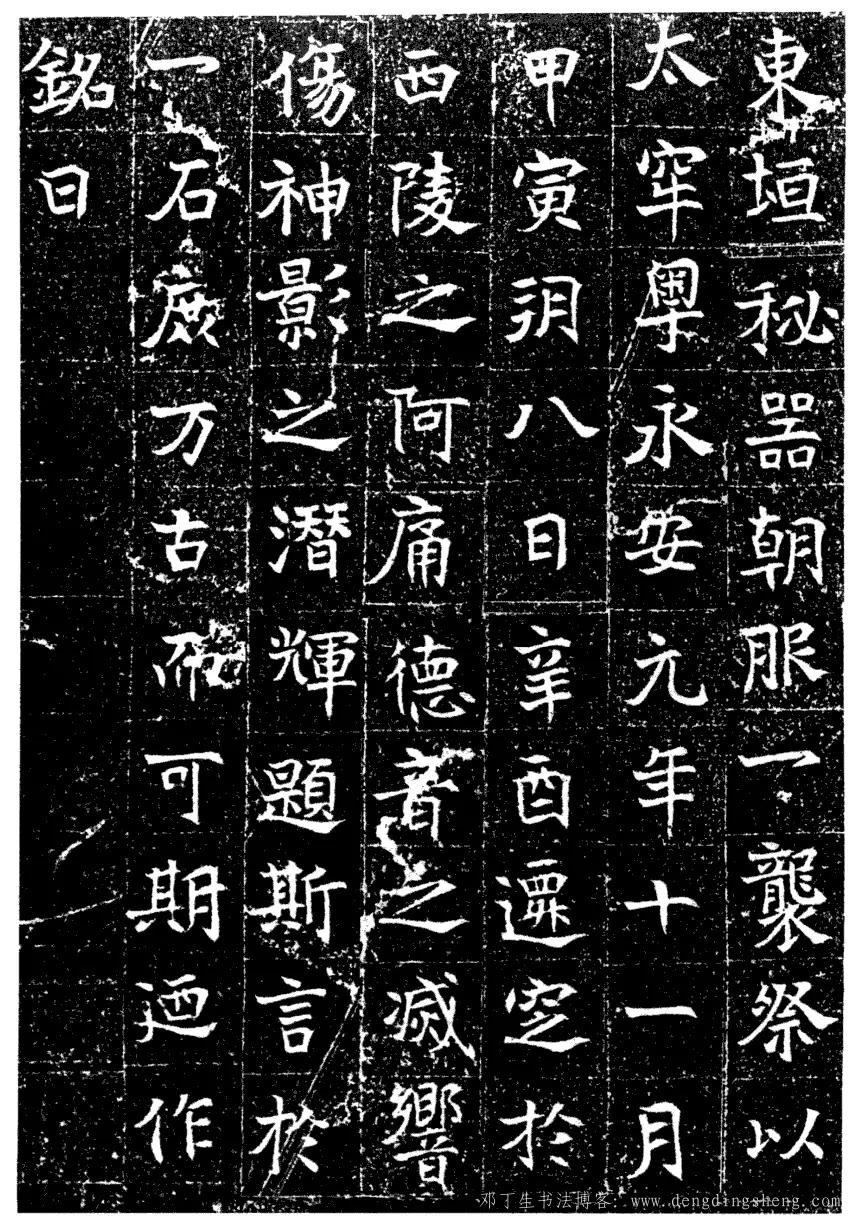 東垣秘器朝服一襲祭以
太窂粤永安元年十一月
甲寅朔八日辛酉遷空於
西陵之阿痛德音之滅響
傷神影之潛輝題斯言於
一石庶万古而可期迺作
銘曰
邓丁生书法博客：www.dengdingsheng.com